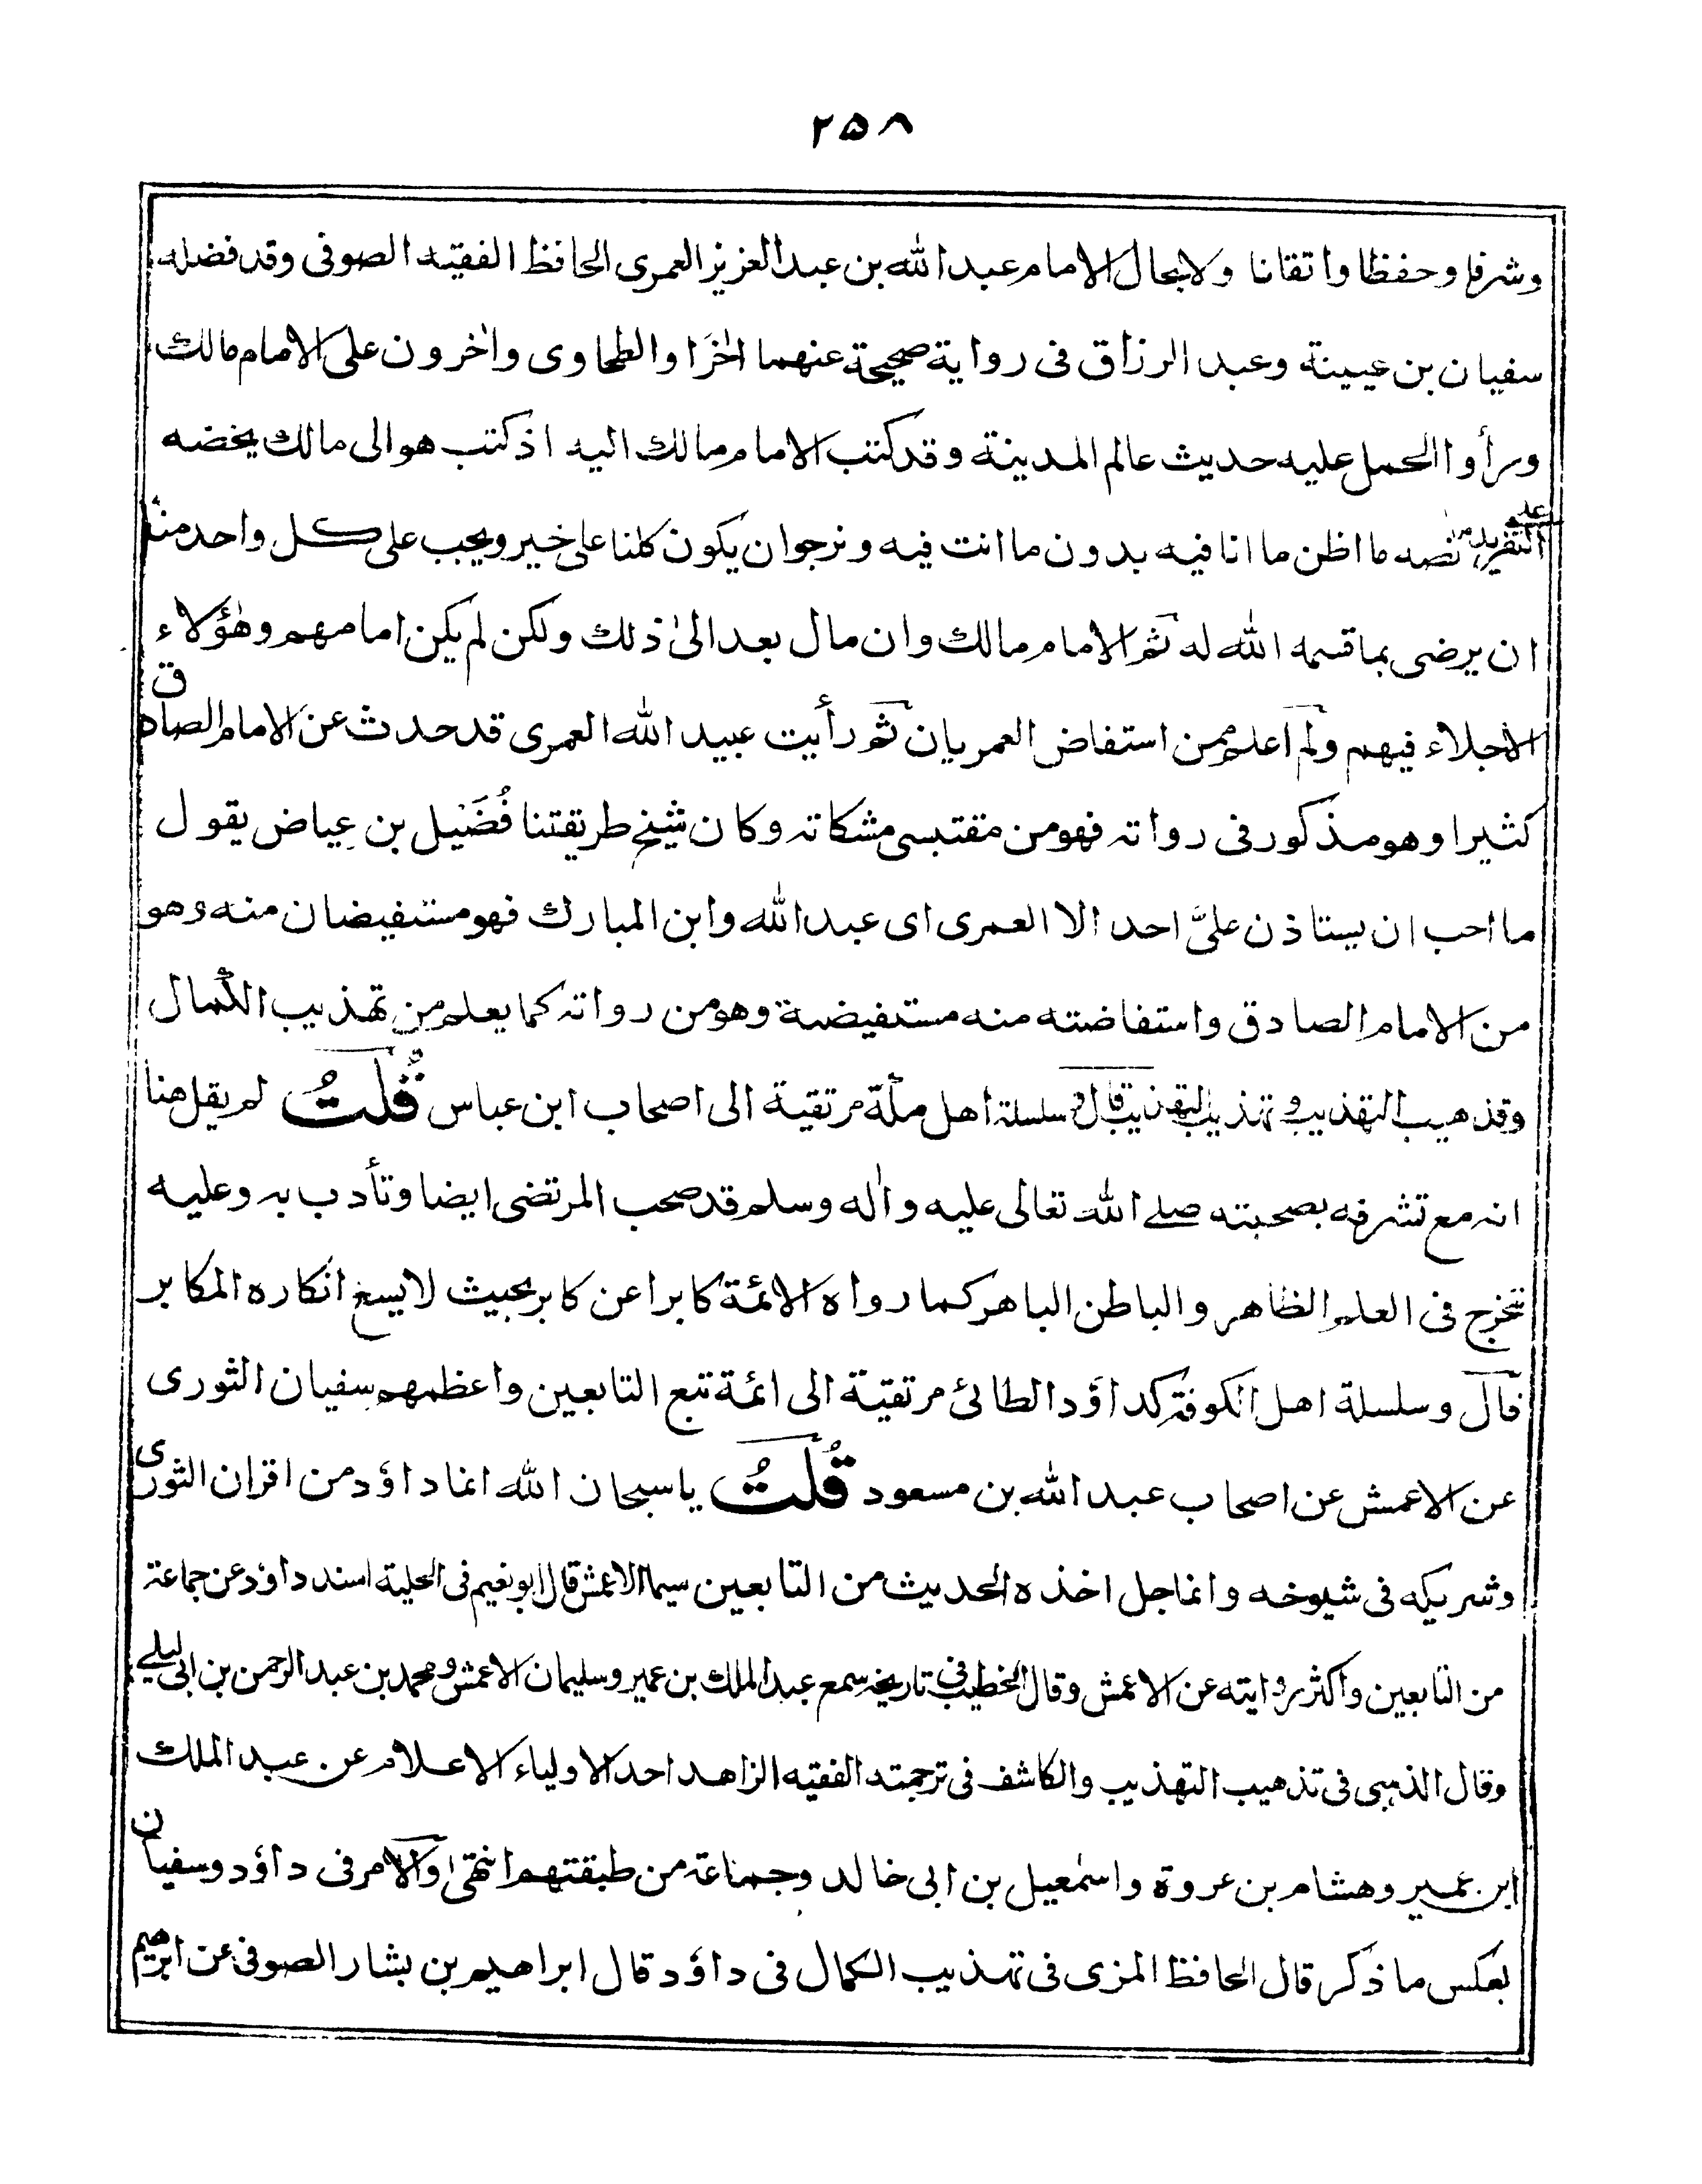 ٢٥٨
وشرفا وحفظا واتقانا ولا بحال الامام عبد الله بن عبد العزيز العمرى الحافظ الفقيه الصوفى وقد فضله
سفيان بن عيينة وعبد الرزاق فى رواية صحيحة عنهما اٰخرًا والطحاوى واٰخرون على الامام مالك
ورأوا الحمل عليه حديث عالم المدينة وقد كتب الامام مالك اليه اذ كتب هو الى مالك يحضه
على التفريد ما نصه ما اظن ما انا فيه بدون ما انت فيه ونرجوان يكون كلنا على خير ويجب على كل واحد منا
ان يرضى بما قسمه الله له ثم الامام مالك وان مال بعد الىٰ ذلك ولكن لم يكن امامهم وهٰؤلاء
الاجلاء فيهم ولم اعلم ممن استفاض العمريان ثم رأيت عبيد الله العمرى قد حدث عن الامام الصادق
كثيرا وهو مذكور فى رواته فهو من مقتبسى مشكاته وكان شيخ طريقتنا فُضَيل بن عياض يقول
ما احب ان يستاذن علىَّ احد الا العمرى اى عبد الله وابن المبارك فهو مستفيضان منه وهو
من الامام الصادق واستفاضته منه مستفيضة وهو من رواته كما يعلم من تهذيب الكمال
وتذهيب التهذيب وتهذيب التهذيب قال وسلسلة اهل مكّة مرتقية الى اصحاب ابن عباس قُلْتُ لم يقل هنا
انه مع تشرفه بصحبته صلے الله تعالى عليه واٰله وسلم قد صحب المرتضى ايضا وتأدب به وعليه
تخرج فى العلم الظاهر والباطن الباهر كما رواه الائمة كابرا عن كابر بحيث لا يسغ انكاره المكابر
قال وسلسلة اهل الكوفة كداؤد الطائى مرتقية الى ائمة تبع التابعين واعظمهم سفيان الثورى
عن الاعمش عن اصحاب عبد الله بن مسعود قُلْتُ يا سبحان الله انما داؤد من اقران الثورى
وشريكه فى شيوخه وانما جل اخذه الحديث من التابعين سيما الاعمش قال ابو نعيم فى الحلية اسند داؤد عن جماعة
من التابعين واكثر روايته عن الاعمش وقال الخطيب فى تاريخه سمع عبد الملك بن عمير وسليمان الاعمش ومحمد بن عبد الرحمن بن ابى ليلے
وقال الذهبى فى تذهيب التهذيب والكاشف فى ترجمته الفقيه الزاهد احد الاولياء الاعلام عن عبد الملك
ابن عمير وهشام بن عروة واسمٰعيل بن ابى خالد وجماعة من طبقتهم انتهىٰ والامر فى داؤد وسفيان
بعكس ما ذكر قال الحافظ المزى فى تهذيب الكمال فى داؤد قال ابراهيم بن بشار الصوفى عن ابرهيم